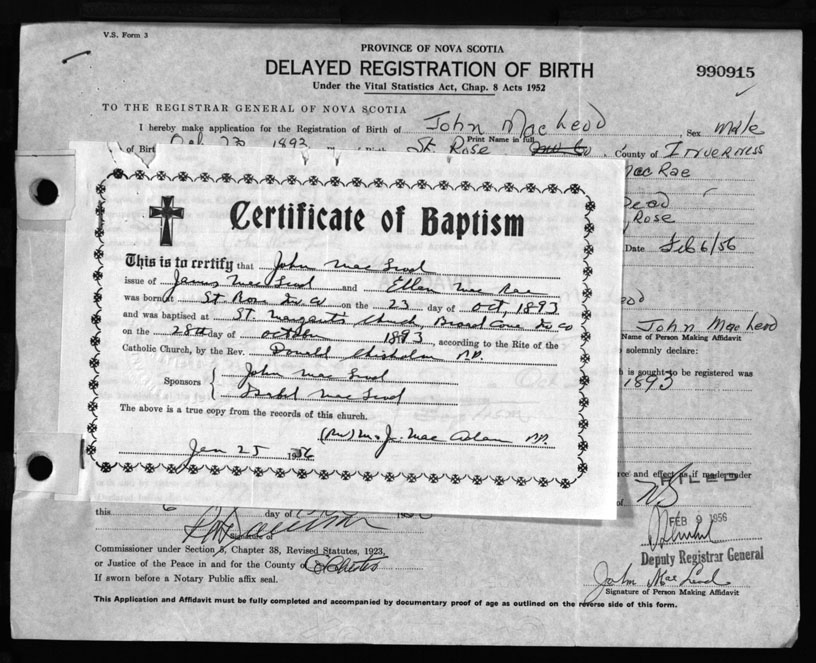 V.S. Form 3
PROVINCE OF NOVA SCOTIA
DELAYED REGISTRATION OF BIRTH
990915
Under the Vital Statistics Act, Chap. 8 Acts 1952
TO THE REGISTRAR GENERAL OF NOVA SCOTIA
I hereby make application for the Registration of Birth of John MacLeod, Sex Male
Print Name in full
of Birth Oct 23 1893 St Rose County of Inverness
MacRae
Dead
Rose
Date Feb 6/56
Certificate of Baptism
This is to certify that John MacLeod
issue of James MacLeod and Ellen MacRae
was born at St. Rose Inv Co on the 23 day of Oct, 1893
and was baptised at St. Margaret's Church, Broad Cove Inv Co
on the 28th day of October 1893, according to the Rite of the
Catholic Church, by the Rev. Donald Chisholm P.P.
Sponsors John MacLeod
Isabel MacLeod
The above is a true copy from the records of this church.
(Rev) M. J. MacAdam P.P.
Jan 25 1956
eod
John MacLeod
Name of Person Making Affidavit
solemnly declare:
h is sought to be registered was
1893
rce and effect as if made under
of
this 6 day of
Signature of
FEB 9 1956
Deputy Registrar General
Commissioner under Section 8, Chapter 38, Revised Statutes, 1923,
or Justice of the Peace in and for the County of
If sworn before a Notary Public affix seal.
John MacLeod
Signature of Person Making Affidavit
This Application and Affidavit must be fully completed and accompanied by documentary proof of age as outlined on the reverse side of this form.